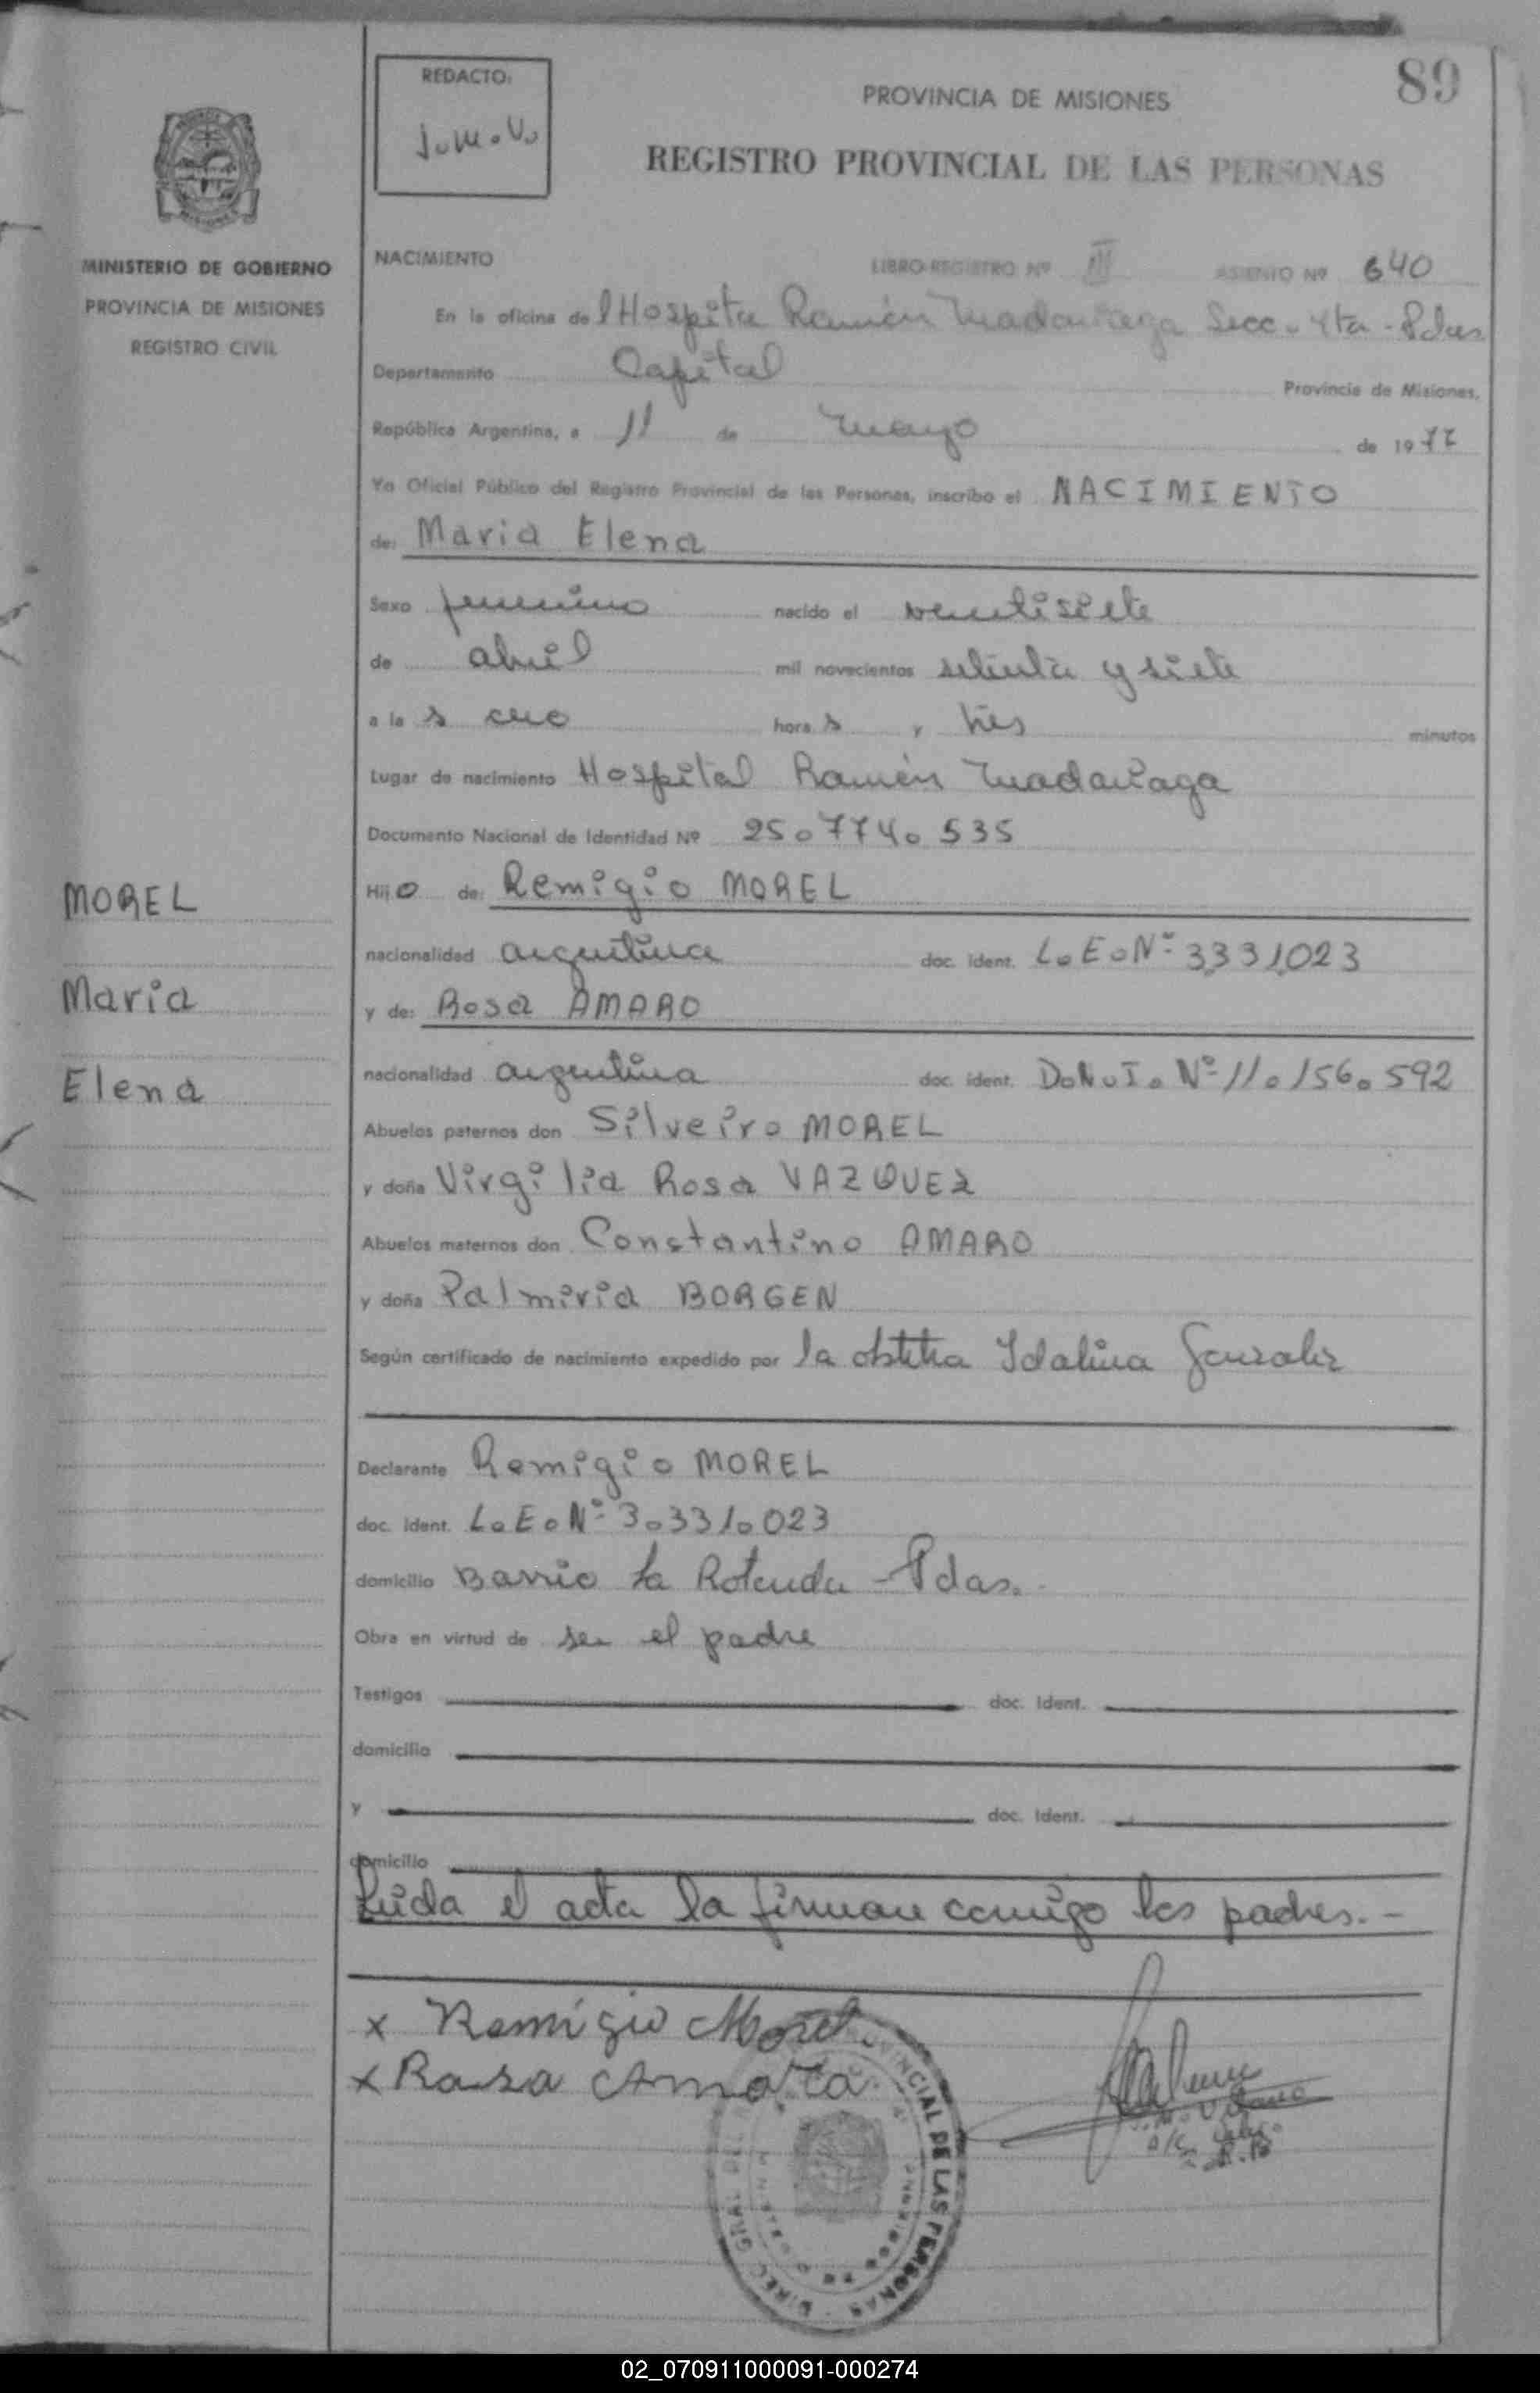 89
REDACTO:
J. M. V.
PROVINCIA DE MISIONES
REGISTRO PROVINCIAL DE LAS PERSONAS
MINISTERIO DE GOBIERNO
PROVINCIA DE MISIONES
REGISTRO CIVIL
NACIMIENTO LIBRO-REGISTRO Nº III ASIENTO Nº 640
En la oficina del Hospital Ramón Madariaga Secc. 4ta - Pdas
Departamento Capital Provincia de Misiones,
República Argentina, a 11 de mayo de 1977
Yo Oficial Público del Registro Provincial de las Personas, inscribo el NACIMIENTO
de: Maria Elena
Sexo femenino nacido el ventisiete
de abril mil novecientos setenta y siete
a las cero horas y tres minutos
Lugar de nacimiento Hospital Ramón Madariaga
Documento Nacional de Identidad Nº 25.774.535
Hijo de: Remigio MOREL
nacionalidad argentina doc. ident. L.E.Nº 3.331.023
y de: Rosa AMARO
nacionalidad argentina doc. ident. D.N.I. Nº 11.156.592
Abuelos paternos don Silveiro MOREL
y doña Virgilia Rosa VAZQUEZ
Abuelos maternos don Constantino AMARO
y doña Palmiria BORGEN
Según certificado de nacimiento expedido por la obstetra Idalina Gonzalez
MOREL
Maria
Elena
Declarante Remigio MOREL
doc. ident. L.E.Nº 3.331.023
domicilio Barrio La Rotonda - Pdas.
Obra en virtud de ser el padre
Testigos doc. ident.
domicilio
y doc. ident.
domicilio
Leida el acta la firman conmigo los padres.-
x Remigio Morel
x Rosa Amaro
PROVINCIAL DE LAS PERSONAS
DIREC. GRAL. DEL
02_070911000091-000274